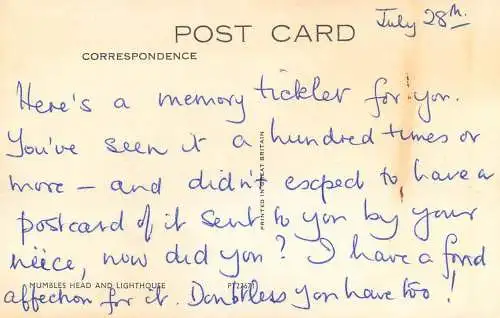 July 28th.
POST CARD
CORRESPONDENCE
Here's a memory tickler for you.
You've seen it a hundred times or
more – and didn't escped to have a
postcard of it sent to you by your
nëice, now did you? I have a fond
affection for it. Doubtless you have too!
PRINTED IN GREAT BRITAIN
MUMBLES HEAD AND LIGHTHOUSE